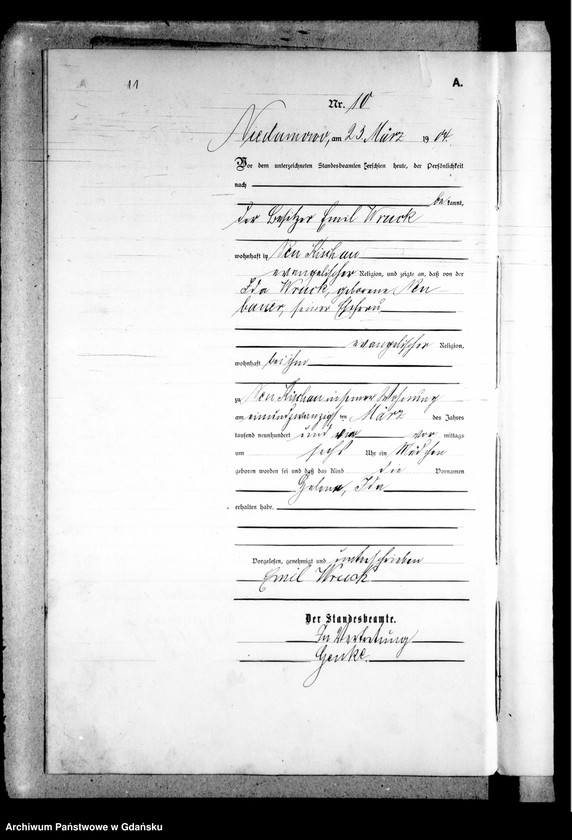 11
A.
Nr. 10
Niedamowo, am 23. März 1904.
Vor dem unterzeichneten Standesbeamten erschien heute, der Persönlichkeit
nach
bekannt,
der Besitzer Emil Wruck
wohnhaft in Neu Kischau
evangelischer Religion, und zeigte an, daß von der
Ida Wruck, geborene Neu
bauer, seiner Ehefrau
evangelischer Religion,
wohnhaft bei ihm
zu Neu Kischau in seiner Wohnung
am einundzwanzigsten März des Jahres
tausend neunhundert und vier vor mittags
um sechs Uhr ein Mädchen
geboren worden sei und daß das Kind die Vornamen
Ida
erhalten habe.
Vorgelesen, genehmigt und unterschrieben
Emil Wruck
Der Standesbeamte.
In Vertretung
Archiwum Państwowe w Gdańsku